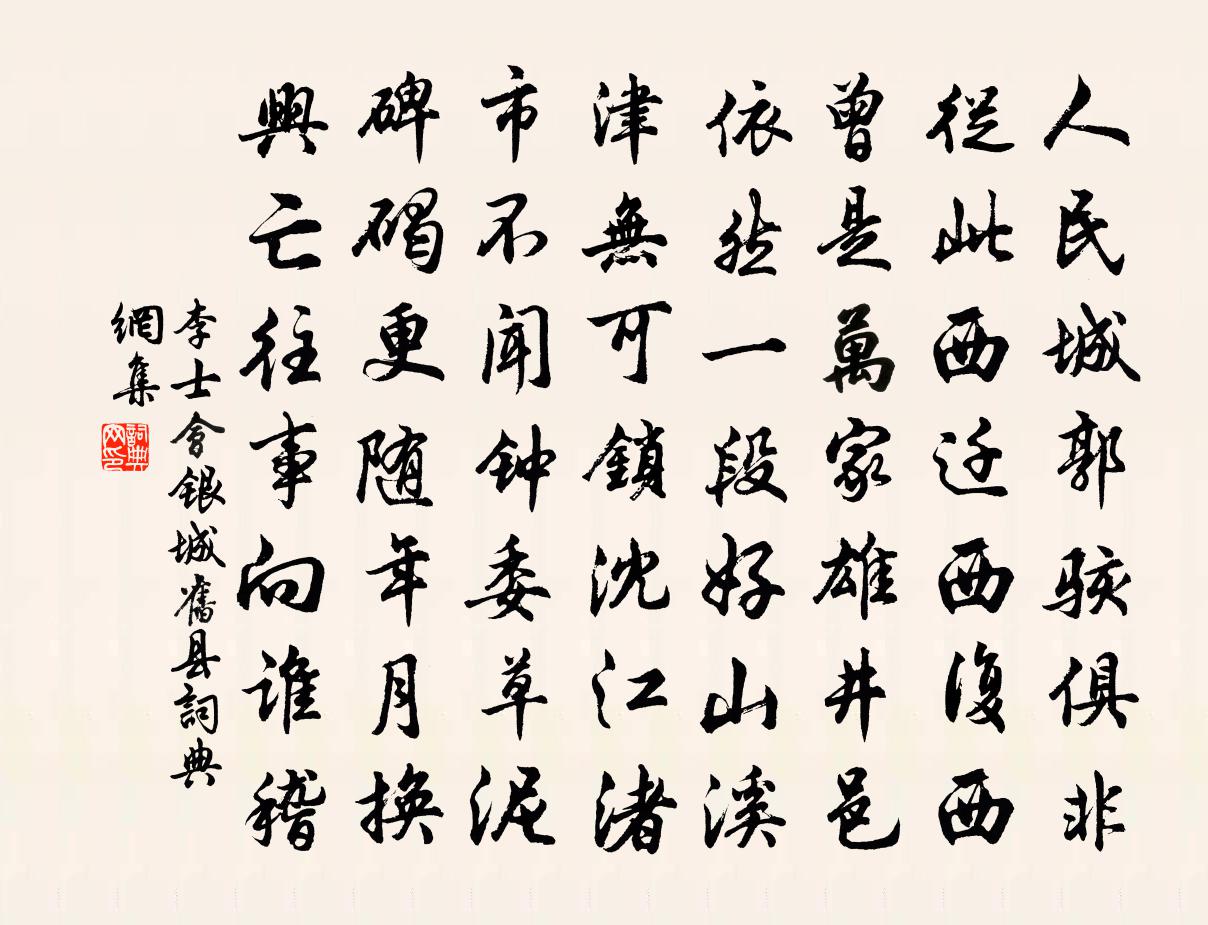 人民城郭駭俱非
從此西迁西復西
曾是萬家雄井邑
依然一段好山溪
津無可鎖沈江渚
市不闻钟委草泥
碑碣更随年月換
興亡往事向誰稽
李士會銀城舊县詞典
網集
詞典
网印